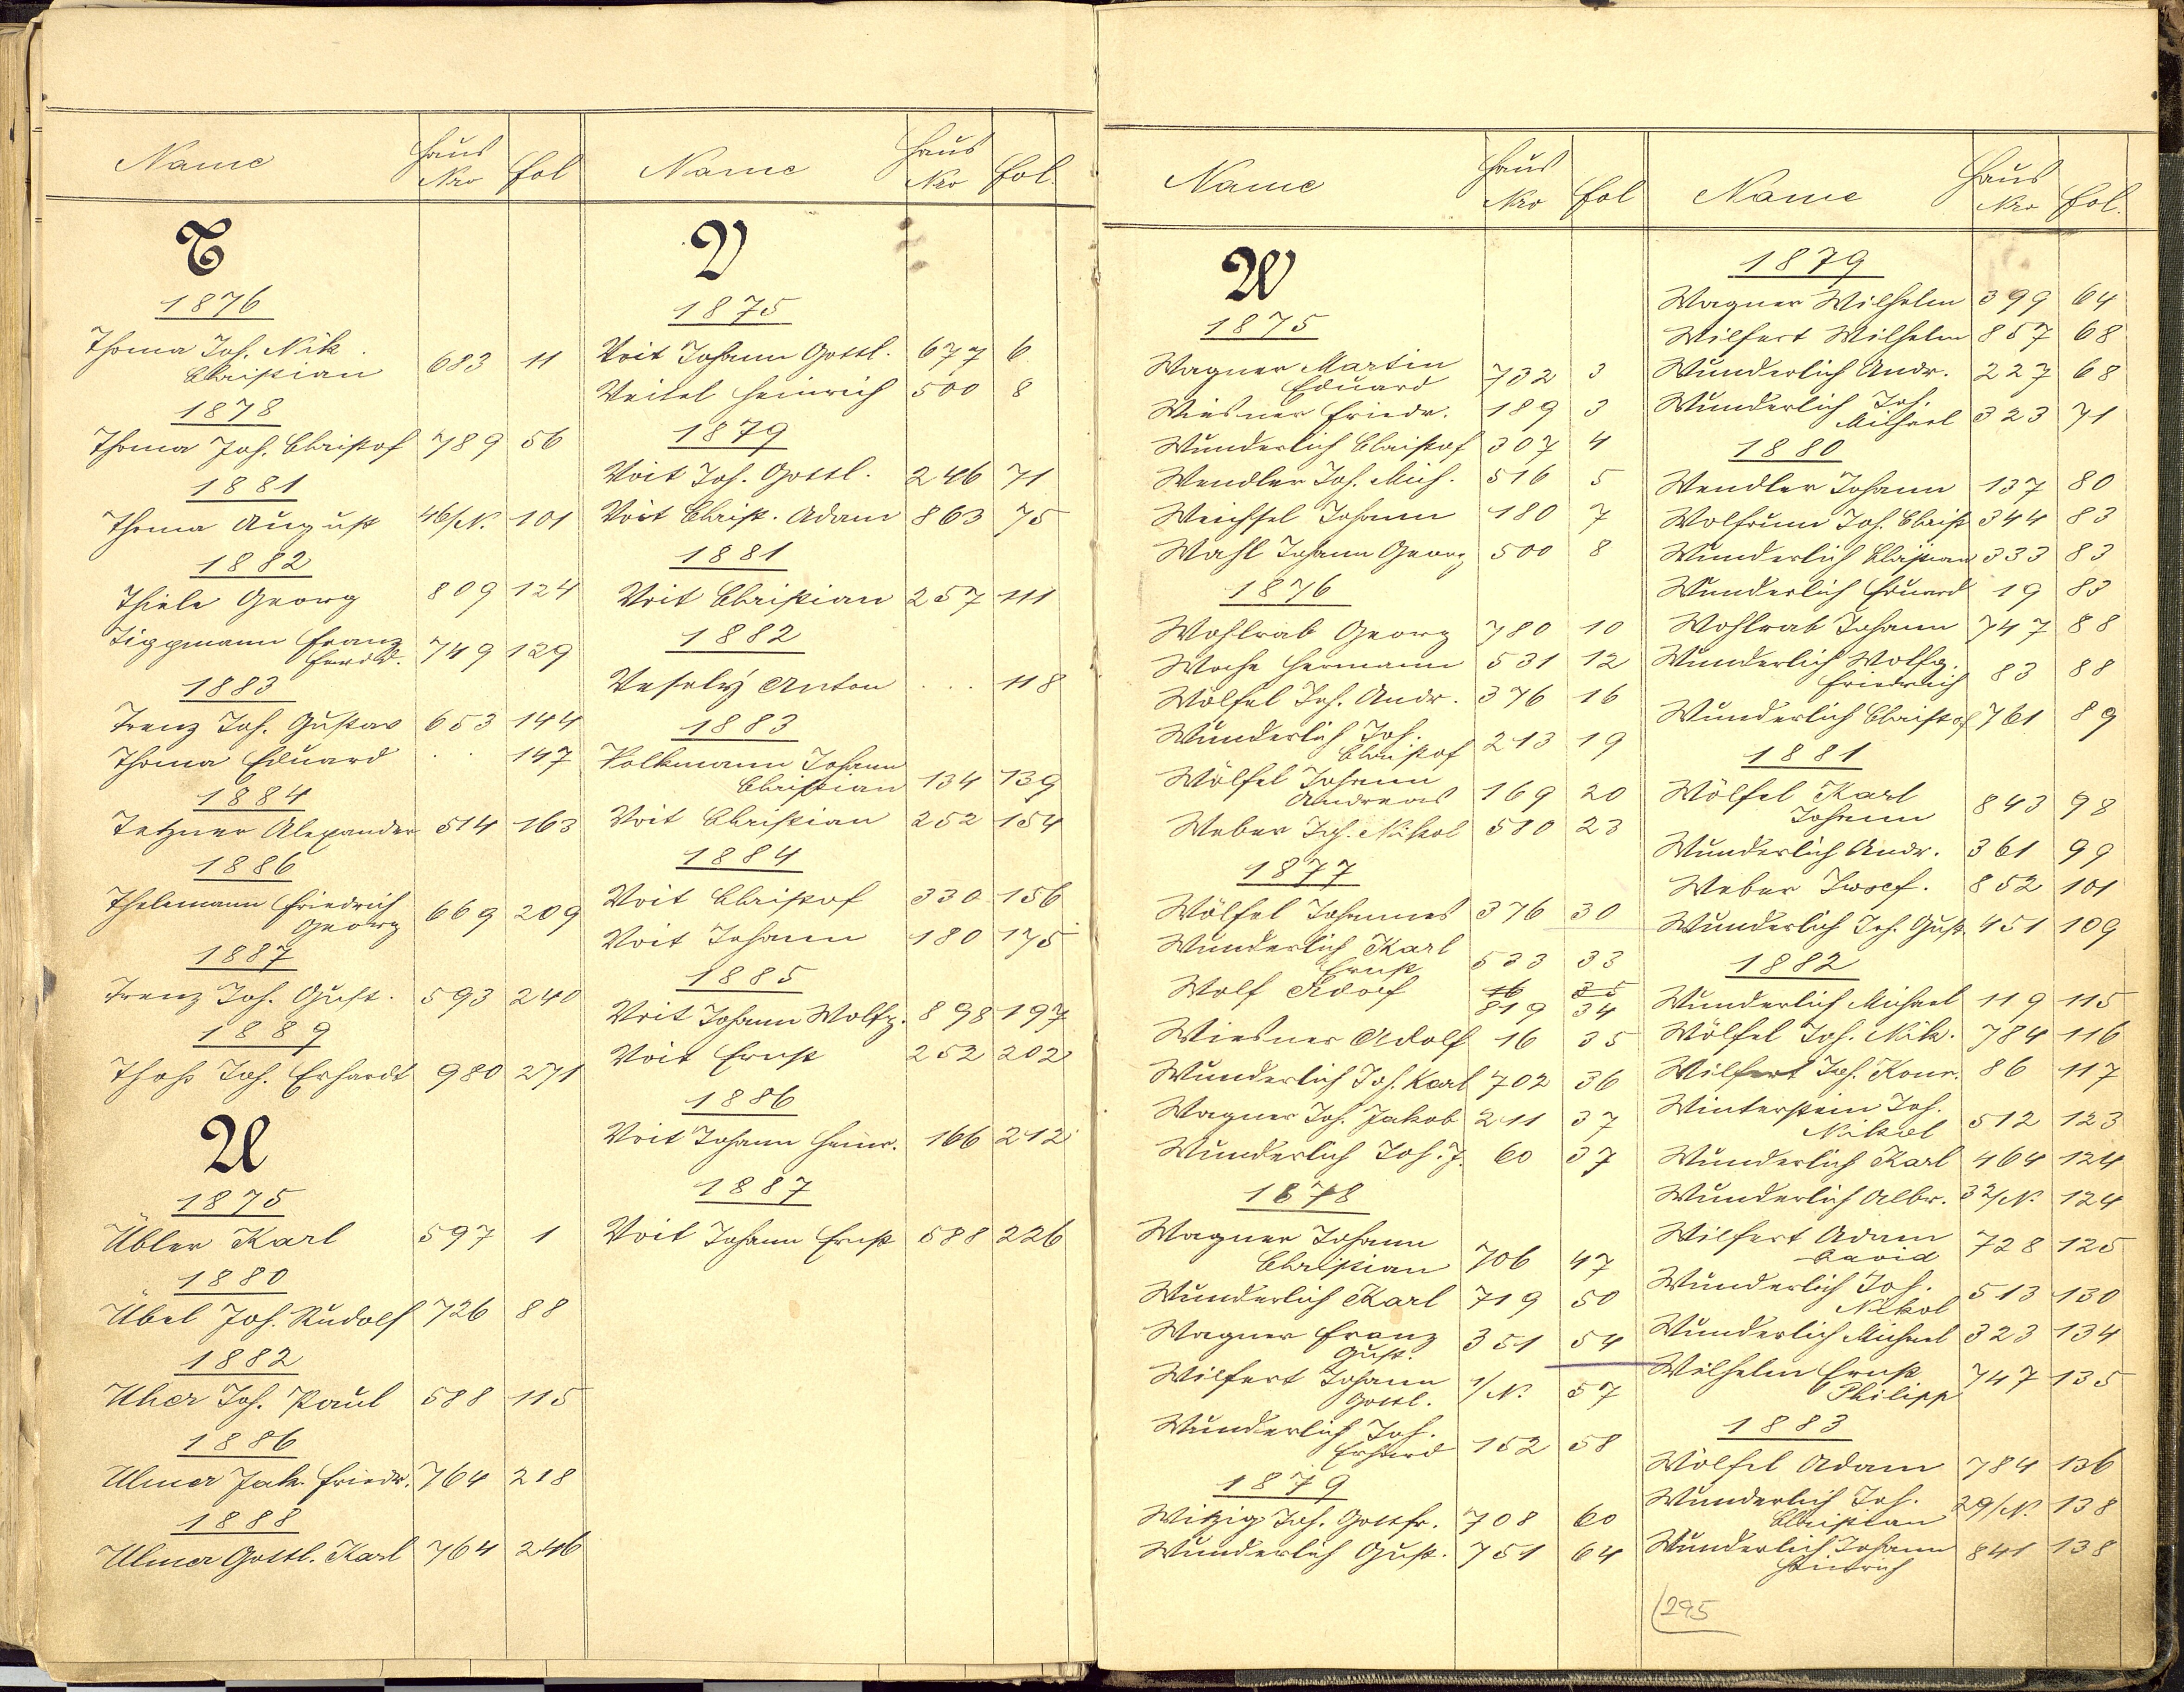 Name Haus Nro fol
T
1876
Thoma Joh. Nik.
Christian 683 11
1878
Thoma Joh. Christof 789 56
1881
Thoma August 46/N. 101
1882
Thiele Georg 809 124
Tiggmann Franz
Ferdd. 749 129
1883
Trenz Joh. Gustav 653 144
Thoma Eduard . . 147
1884
Tetzner Alexander 514 163
1886
Thelemann Friedrich
Georg 669 209
1887
Trenz Joh. Gust. 593 240
1889
Thoß Joh. Erhardt 980 271
U
1875
Übler Karl 597 1
1880
Übel Joh. Rudolf 726 88
1882
Uher Joh. Paul 588 115
1886
Ulmer Jak. Friedr. 764 218
1888
Ulmer Gottl. Karl 764 246
Name Haus Nro fol.
V
1875
Voit Johann Gottl. 677 6
Veitel Heinrich 500 8
1879
Voit Joh. Gottl. 246 71
Voit Christ. Adam 863 75
1881
Voit Christian 257 111
1882
Veselý Anton . . . 118
1883
Volkmann Johann
Christian 134 139
Voit Christian 252 154
1884
Voit Christof 330 156
Voit Johann 180 175
1885
Voit Johann Wolfg. 898 197
Voit Ernst 252 202
1886
Voit Johann Heinr. 166 212
1887
Voit Johann Ernst 588 226
Name Haus Nro fol
W
1875
Wagner Martin
Eduard 732 3
Wiesner Friedr. 189 3
Wunderlich Christof 307 4
Wendler Joh. Mich. 516 5
Weichsel Johann 180 7
Wahl Johann Georg 500 8
1876
Wohlrab Georg 780 10
Woche Hermann 531 12
Wölfel Joh. Andr. 376 16
Wunderlich Joh.
Christof 213 19
Wölfel Johann
Andreas 169 20
Weber Joh. Nikol 580 23
1877
Wölfel Johannes 376 30
Wunderlich Karl
Ernst 533 33
16 35
Wolf Adolf 819 34
Wiesner Adolf 16 35
Wunderlich Joh. Karl 702 36
Wagner Joh. Jakob 211 37
Wunderlich Joh. J. 60 37
1878
Wagner Johann
Christian 706 47
Wunderlich Karl 719 50
Wagner Franz
Gust. 351 54
Wilfert Johann
Gottl. 1/N. 57
Wunderlich Joh.
Erhard 152 58
1879
Witzig Joh. Gottfr. 708 60
Wunderlich Gust. 751 64
Name Haus Nro fol.
1879
Wagner Wilhelm 399 64
Wilfert Wilhelm 857 68
Wunderlich Andr. 227 68
Wunderlich Joh.
Michael 323 71
1880
Wendler Johann 137 80
Wolfrum Joh. Christ 344 83
Wunderlich Christian 333 83
Wunderlich Eduard 19 83
Wohlrab Johann 747 88
Wunderlich Wolfg.
Friedrich 83 88
Wunderlich Christof 761 89
1881
Wölfel Karl
Johann 843 98
Wunderlich Andr. 361 99
Weber Josef. 852 101
Wunderlich Joh. Gust. 451 109
1882
Wunderlich Michael 119 115
Wölfel Joh. Nik. 784 116
Wilfert Joh. Konr. 86 117
Winterstein Joh.
Nikol 512 123
Wunderlich Karl 464 124
Wunderlich Albr. 32/N. 124
Wilfert Adam
David 728 125
Wunderlich Joh.
Nikol 513 130
Wunderlich Michael 323 134
Wilhelm Ernst
Philipp 747 135
1883
Wölfel Adam 784 136
Wunderlich Joh.
Christian 29/N. 138
Wunderlich Johann
Heinrich 841 138
295